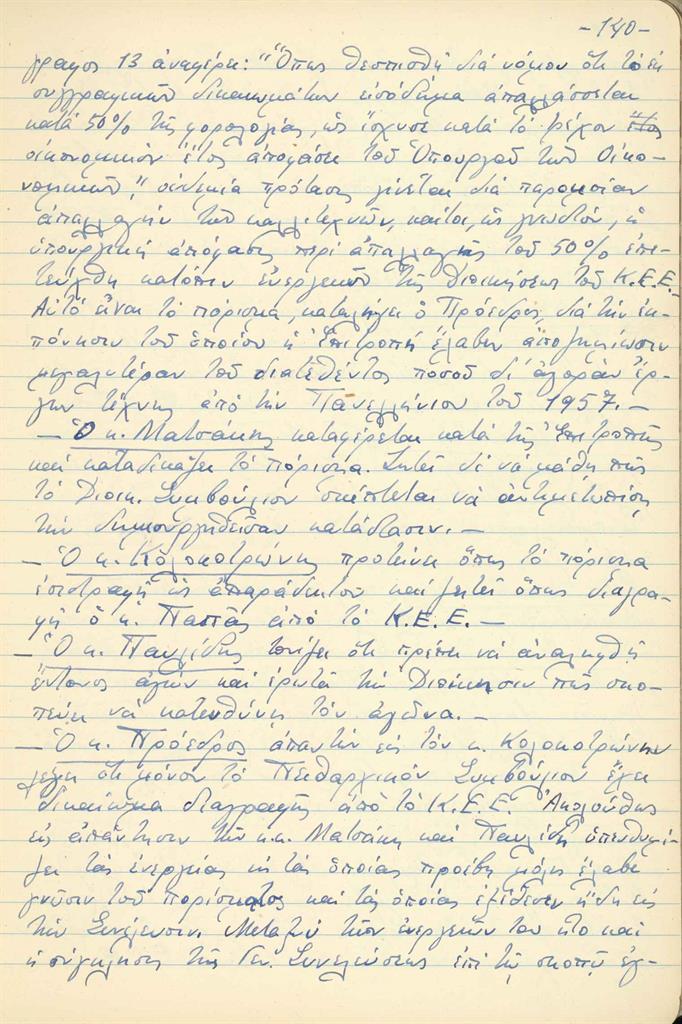 -140-
γραφος 13 ἀναφέρει: "Ὅπως θεσπισθῇ διά νόμου ὅτι τό ἐκ
συγγραφικῶν δικαιωμάτων εἰσόδημα ἀπαλλάσσεται
κατά 50% τῆς φορολογίας, ὡς ἴσχυσε κατά τό τρέχον
οἰκονομικόν ἔτος ἀποφάσει τοῦ Ὑπουργοῦ τῶν Οἰκο-
νομικῶν", οὐδεμία πρότασις γίνεται διά παρομοίαν
ἀπαλλαγήν τῶν καλλιτεχνῶν, καίτοι, ὡς γνωστόν, ἡ
ὑπουργική ἀπόφασις περί ἀπαλλαγῆς τοῦ 50% ἐπε-
τεύχθη κατόπιν ἐνεργειῶν τῆς Διοικήσεως τοῦ Κ.Ε.Ε.-
Αὐτό εἶναι τό πόρισμα, καταλήγει ὁ Πρόεδρος, διά τήν ἐκ-
πόνησιν τοῦ ὁποίου ἡ Ἐπιτροπή ἔλαβεν ἀποζημίωσιν
μεγαλυτέραν τοῦ διατεθέντος ποσοῦ δι' ἀγοράν ἔρ-
γων τέχνης ἀπό τήν Πανελλήνιον τοῦ 1957.-
- Ὁ κ. Ματσάκης καταφέρεται κατά τῆς Ἐπιτροπῆς
καί καταδικάζει τό πόρισμα. Ζητεῖ δέ νά μάθῃ πῶς
τό Διοικ. Συμβούλιον σκέπτεται νά ἀντιμετωπίσῃ
τήν δημιουργηθεῖσαν κατάστασιν.-
- Ὁ κ. Κολοκοτρώνης προτείνει ὅπως τό πόρισμα
ἐπιστραφῇ ὡς ἀπαράδεκτον καί ζητεῖ ὅπως διαγρα-
φῇ ὁ κ. Παππᾶς ἀπό τό Κ.Ε.Ε.-
- Ὁ κ. Παυλίδης τονίζει ὅτι πρέπει νά ἀναληφθῇ
ἔντονος ἀγών καί ἐρωτᾷ τήν Διοίκησιν πῶς σκο-
πεύει νά κατευθύνῃ τόν ἀγῶνα.-
- Ὁ κ. Πρόεδρος ἀπαντῶν εἰς τόν κ. Κολοκοτρώνην
λέγει ὅτι μόνον τό Πειθαρχικόν Συμβούλιον ἔχει
δικαίωμα διαγραφῆς ἀπό τό Κ.Ε.Ε. Ἀκολούθως
εἰς ἀπάντησιν τῶν κ.κ. Ματσάκη καί Παυλίδη ὑπενθυμί-
ζει τάς ἐνεργείας εἰς τάς ὁποίας προέβη μόλις ἔλαβε
γνῶσιν τοῦ πορίσματος καί τάς ὁποίας ἐξέθεσεν ἤδη εἰς
τήν Συνέλευσιν. Μεταξύ τῶν ἐνεργειῶν του ἦτο καί
ἡ σύγκλησις τῆς Γεν. Συνελεύσεως ἐπί τῷ σκοπῷ ἐγ-